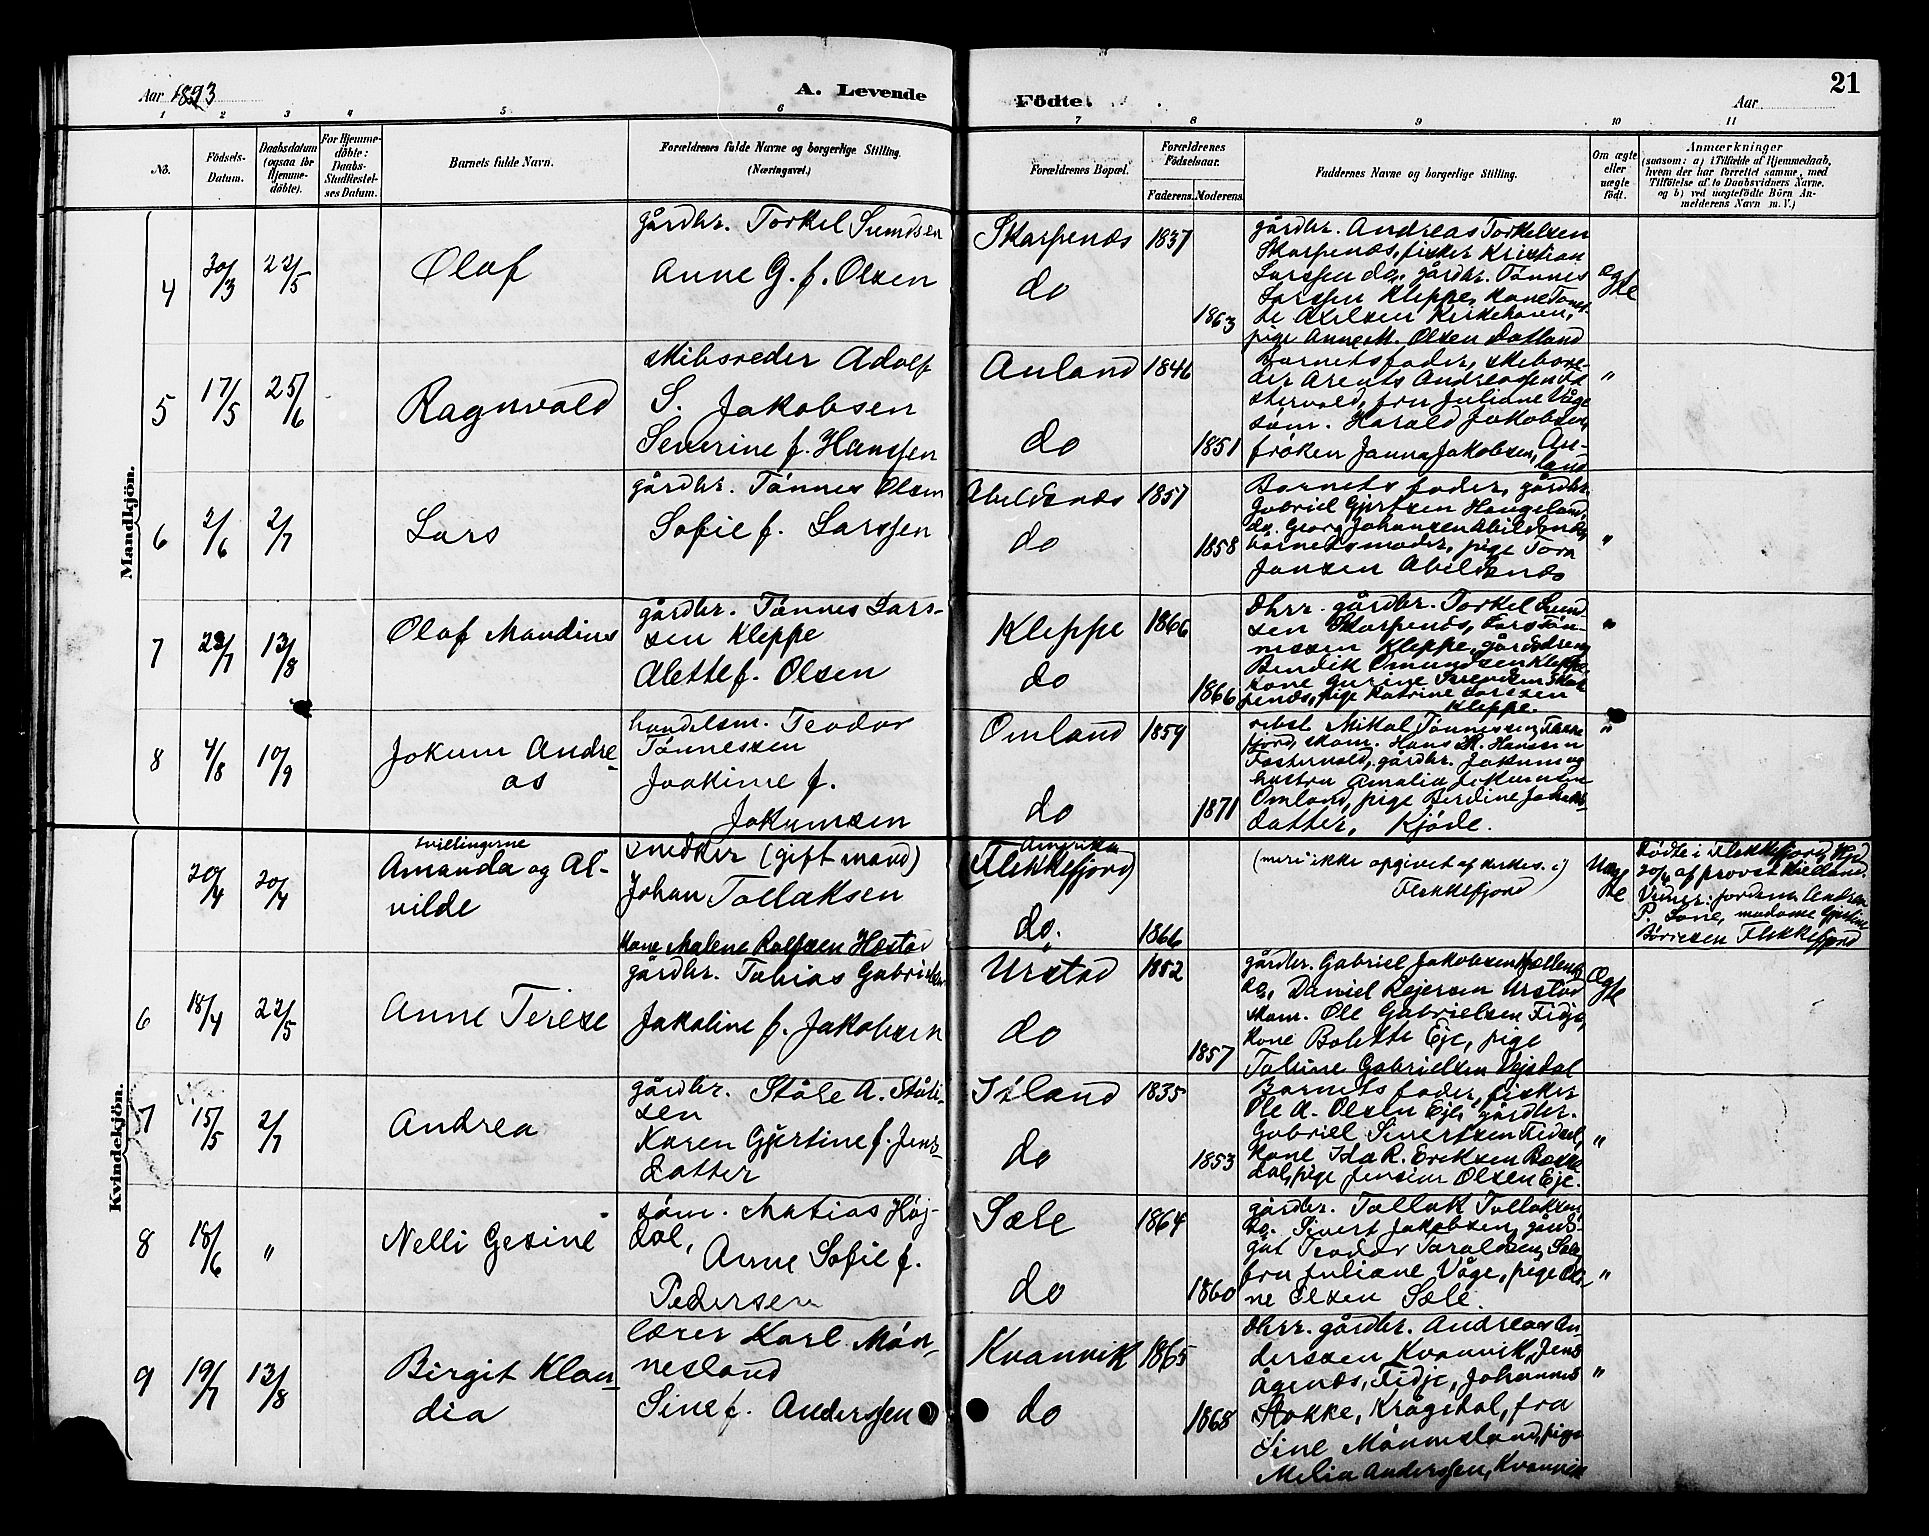 Aar 1893
A. Levende
Födte.
Aar
21
1 2 3 4 5 6 7 8 9 10 11
No.
Födsels-
Datum.
Daabsdatum
(ogsaa for
Hjemme-
döbte).
For Hjemme-
döbte:
Daabs-
Stadfæstel-
ses Datum.
Barnets fulde Navn.
Forældrenes fulde Navne og borgerlige Stilling.
(Næringsvei.)
Forældrenes Bopæl.
Forældrenes
Födselsaar.
Faderens. Moderens.
Faddernes Navne og borgerlige Stilling.
Om ægte
eller
uægte
födt.
Anmærkninger
(saasom: a) i Tilfælde af Hjemmedaab,
hvem der har forrettet samme, med
Tilföielse af to Daabsvidners Navne.
og b) ved uægtefödte Börn An-
melderens Navn m. V.)
Mandkjön.
4
30/3
22/5
Olaf
gårdbr. Torkel Sundsen
Anne G. f. Olsen
Skarpenæs
do
1837
1863
gårdbr. Andreas Torkelsen
Skarpenæs, fisker Kristian
Larssen do, gårdbr. Tönnes
Larssen Kleppe, kone Tonet-
te Axelsen Kirkehavn,
pige Anne M. Olsen Datland
ægte
5
17/5
25/6
Ragnvald
skibsreder Adolf
S. Jakobsen
Severine f. Hanssen
Anland
do
1846
1851
Barnets fader, skibsre-
der Arents Andreassen
stervold, fru Juliane Våge
söm. Harald Jakobsen,
fröken Janna Jakobsen, An-
land
"
6
2/6
2/7
Lars
gårdbr. Tönnes Olsen
Sofie f. Larssen
Abildsnæs
do
1857
1858
Barnets fader, gårdbr.
Gabriel Gjertsen Haugeland,
do. Georg Johansen Abildsnæs,
barnets moder, pige Tora
Jansen Abildsnæs
"
7
22/7
13/8
Olaf Mandius
gårdbr. Tönnes Lars-
sen Kleppe
Alette f. Olsen
Kleppe
do
1866
1866
Dhrr. gårdbr. Torkel Sund-
sen Skarpenæs, Lars Tön-
nessen Kleppe, gårddreng
Bendik Omundsen Kleppe
kone Gurine
penæs, pige Katrine Larssen
Kleppe.
"
8
4/8
10/9
Jokum Andre-
as
handelsm. Teodor
Tönnessen
Joakime f.
Jokumsen
Omland
do
1859
1871
Mikal Tönnessen, Flekke-
fjord, skom. Hans M. Hanssen
Fostervold, gårdbr. Jokum og
hustru Amalia Jokumsen
Omland, pige Berdine Jakobs-
datter, Kjöde.
"
Kvindekjön.
20/4
20/4
tvillingerne
Amanda og Al-
vilde
snedker (gift mand)
Johan Tollaksen
kone Malene Rolfsen Hæstad
Amerika
(Flekkefjord)
do.
1866
(meri ikke opgivet af kirkes. i)
Flekkefjord
Uæg
te
Födte i Flekkefjord, Hjd
20/4 af provst Kielland.
Vidner: jordem. Andrea
P. Lone, madame Gjertine
Börresen Flekkefjord
6
18/4
22/5
Anne Terese
gårdbr. Tobias Gabrielsen
Jakobine f. Jakobsen
Urstad
do
1852
1857
gårdbr. Gabriel Jakobsen
do, Daniel Rejersen Urstad
skom. Ole Gabrielsen Fidje,
kone Bolette Eje, pige
Tobine Gabrielsen
Ægte
7
15/5
2/7
Andrea
gårdbr. Ståle A. Ståle-
sen
Karen Gjertine f. Jens-
datter
Island
do
1835
1853
Barnets fader, fisker
Ole A. Olsen Eje, gårdbr.
Gabriel Sivertsen
kone Ida R. Eriksen
dal, pige Jensine Olsen Eje.
"
8
18/6
"
Nelli Gesine
söm. Matias Höj-
dal,
Anne Sofie f.
Pedersen
Sæle
do
1864
1860
gårdbr. Tollak Tollaksen,
do. Sivert Jakobsen, gårds-
gut Teodor Taraldsen, Sæle
fru Juliane Våge, pige An-
ne Olsen Sæle.
"
9
19/7
13/8
Birgit Klau-
dia
lærer Karl Mön-
nesland
Sine f. Anderssen
Kvanvik
do
1865
1868
Dhrr. gårdbr. Andreas An-
derssen Kvanvik, Jens
Ågenæs, Fidje, Johannes
Stokke, Krågedal, fra
Sine Mönnesland, pige
Melia Anderssen, Kvanvik
"